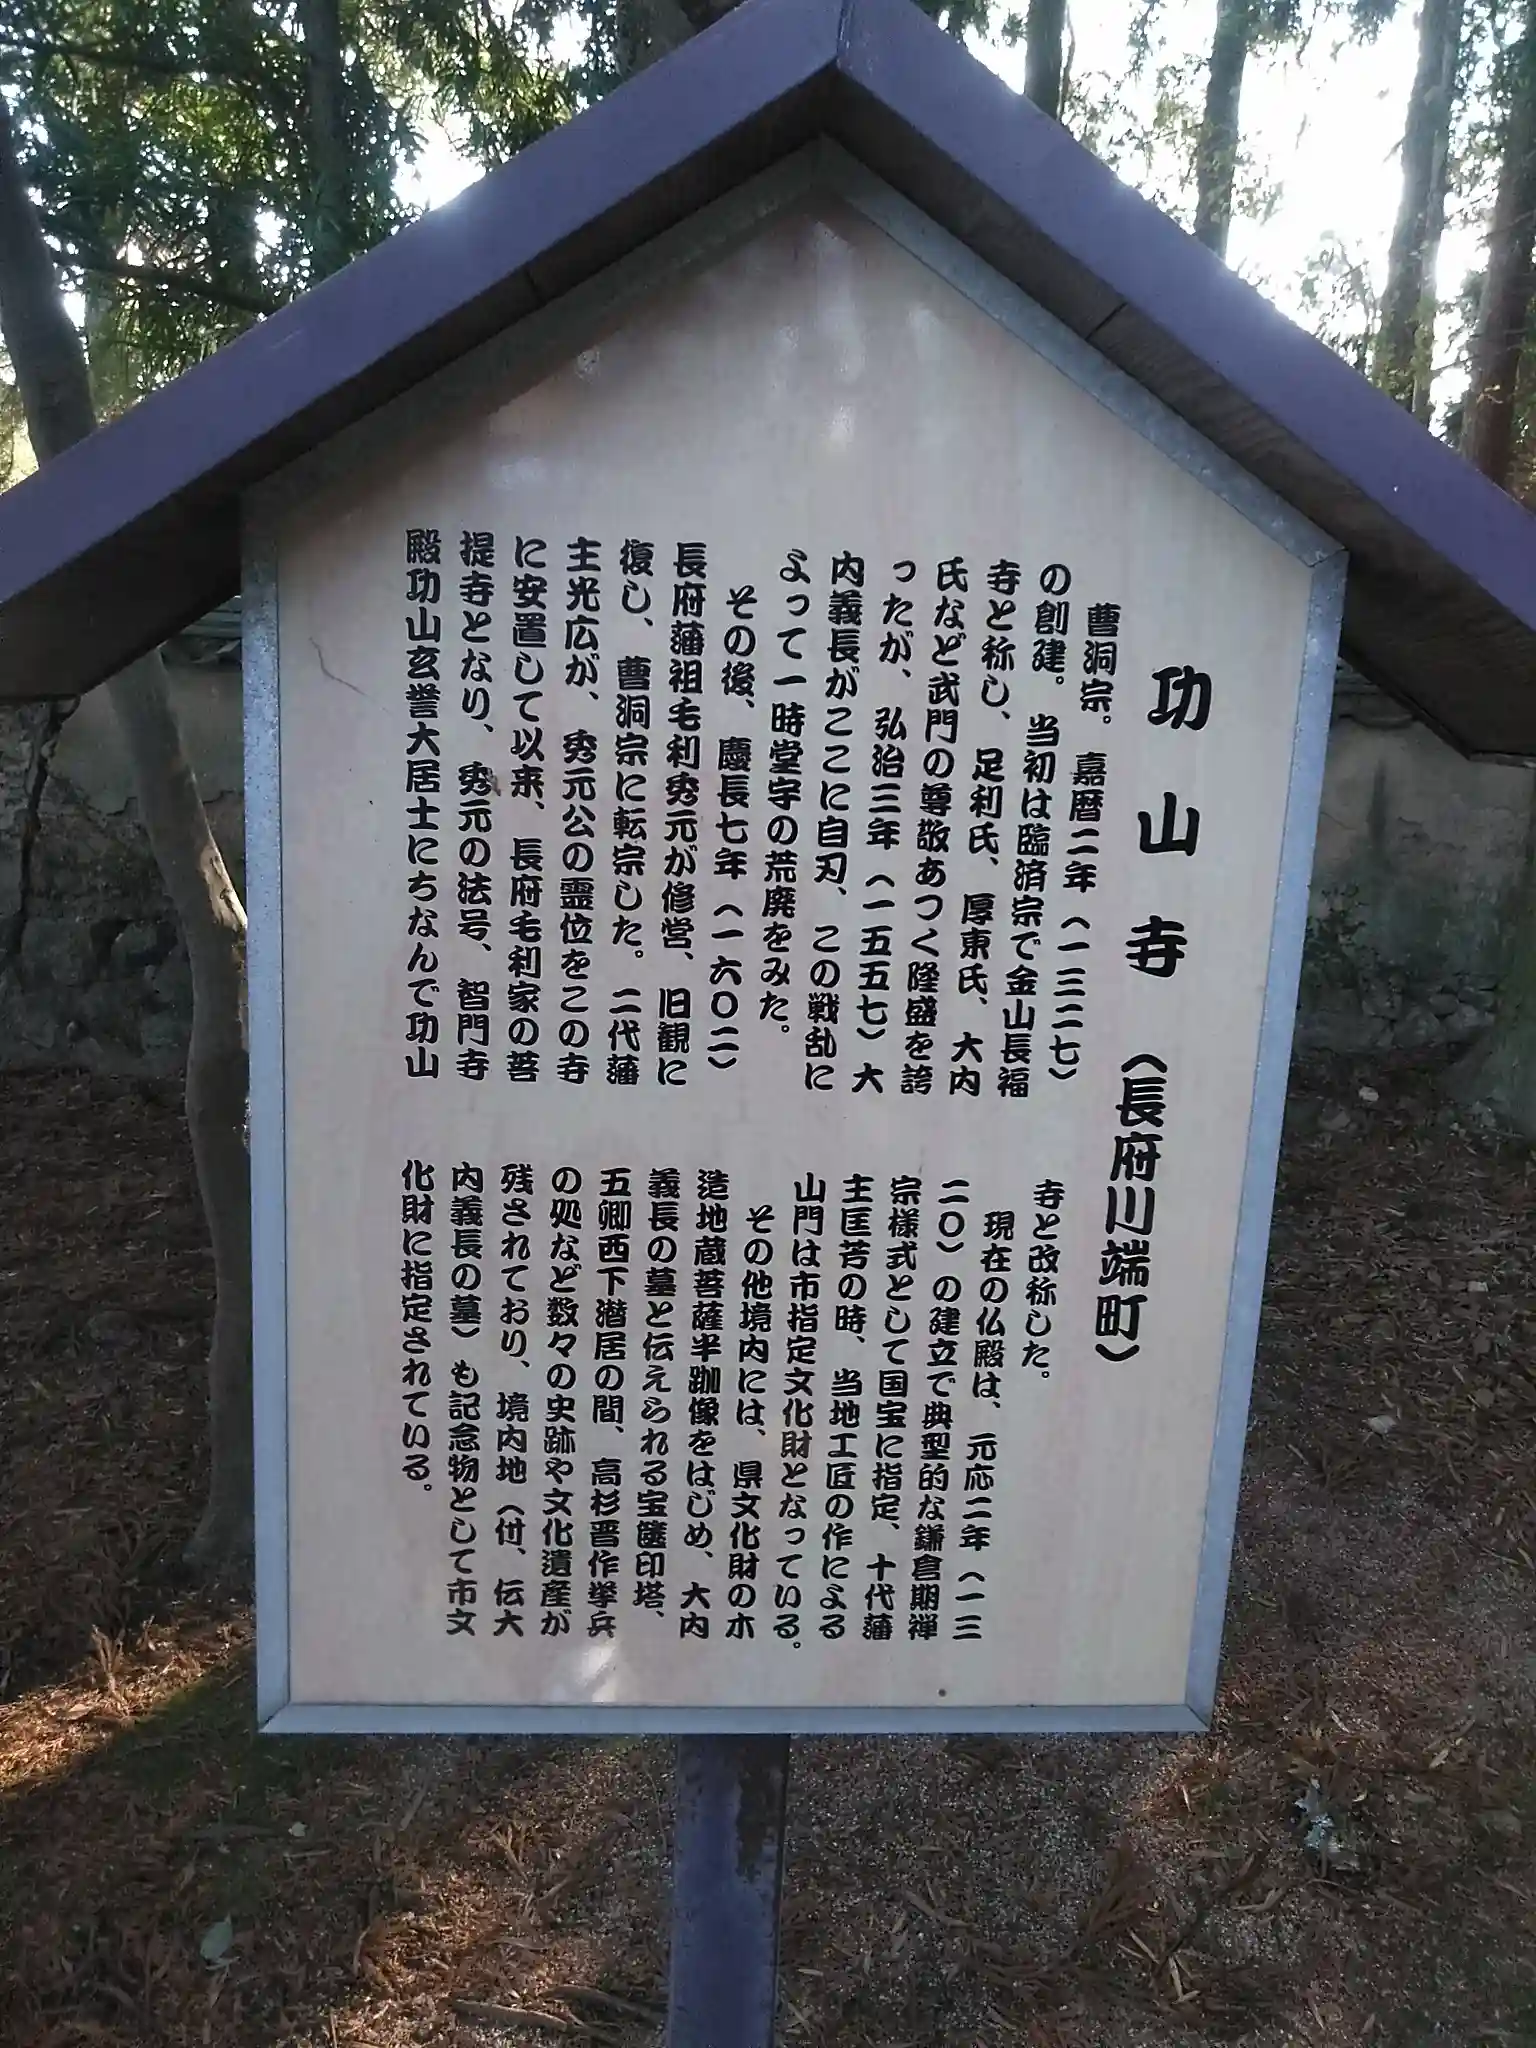 功山寺（長府川端町）
曹洞宗。嘉暦二年（一三二七）
の創建。当初は臨済宗で金山長福
寺と称し、足利氏、厚東氏、大内
氏など武門の尊敬あつく隆盛を誇
ったが、弘治三年（一五五七）大
内義長がここに自刃、この戦乱に
よって一時堂宇の荒廃をみた。
その後、慶長七年（一六〇二）
長府藩祖毛利秀元が修営、旧観に
復し、曹洞宗に転宗した。二代藩
主光広が、秀元公の霊位をこの寺
に安置して以来、長府毛利家の菩
提寺となり、秀元の法号、智門寺
殿功山玄誉大居士にちなんで功山
寺と改称した。
現在の仏殿は、元応二年（一三
二〇）の建立で典型的な鎌倉期禅
宗様式として国宝に指定、十代藩
主匡芳の時、当地工匠の作による
山門は市指定文化財となっている。
その他境内には、県文化財の木
造地蔵菩薩半跏像をはじめ、大内
義長の墓と伝えられる宝篋印塔、
五卿西下潜居の間、高杉晋作挙兵
の処など数々の史跡や文化遺産が
残されており、境内地（付、伝大
内義長の墓）も記念物として市文
化財に指定されている。